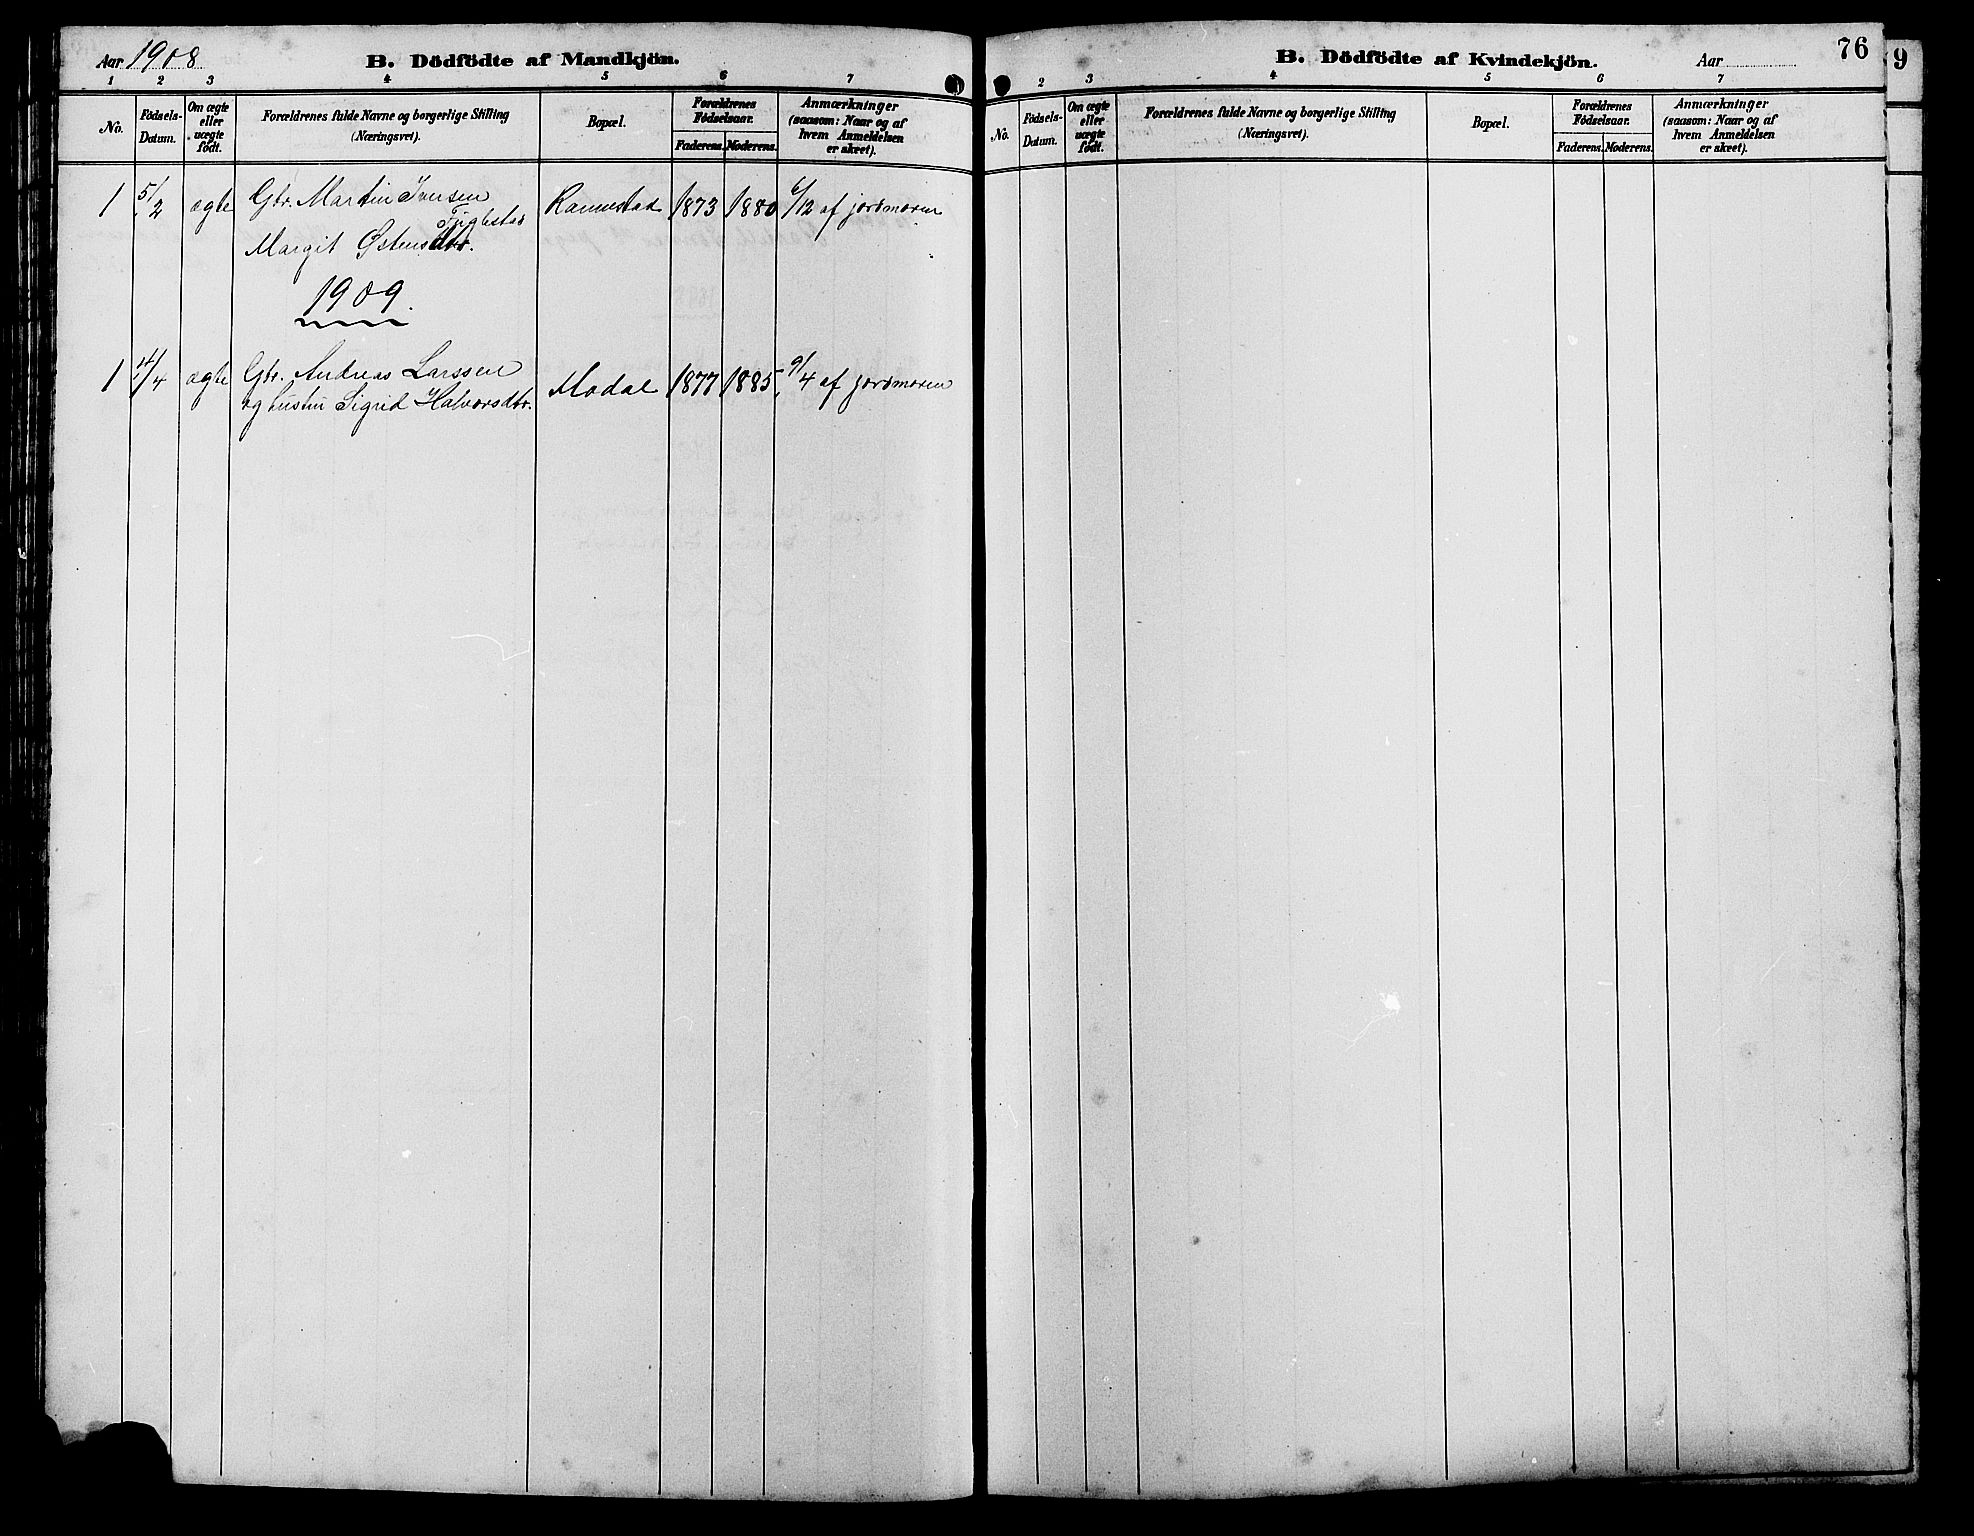 Aar 1908 B. Dödfödte af Mandkjön.
1 2 3 4 5 6 7
No. Födsels-Datum. Om ægte eller uægte födt. Forældrenes fulde Navne og borgerlige Stilling (Næringsvei). Bopæl. Forældrenes Födselsaar. Faderens. Moderens. Anmærkninger (saasom: Naar og af hvem Anmeldelsen er skeet).
1 5/2 ægte Gbr. Martin Iversen Rannestad 1873 1880 6/12 af jordmoren
Fuglestad
Margit Østensdtr.
1909.
1 14/4 ægte Gbr. Andreas Larssen Modal 1877 1885 9/4 af jordmoren
og hustru Sigrid Halvorsdtr.
B. Dödfödte af Kvindekjön. Aar 76
2 3 4 5 6 7
No. Födsels-Datum. Om ægte eller uægte födt. Forældrenes fulde Navne og borgerlige Stilling (Næringsvei). Bopæl. Forældrenes Födselsaar. Faderens. Moderens. Anmærkninger (saasom: Naar og af hvem Anmeldelsen er skeet).
9